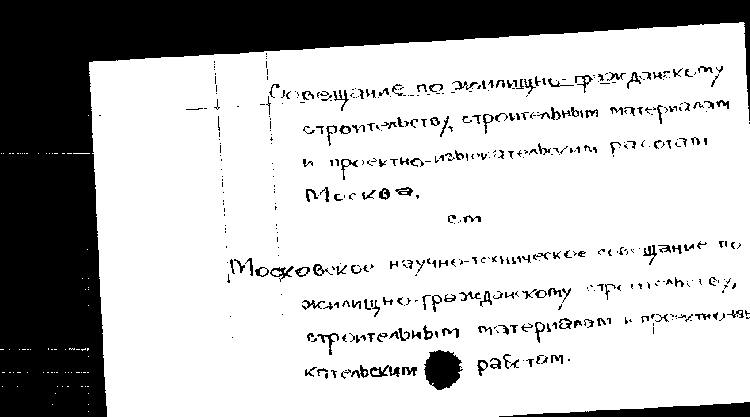 Совещание по жилищно-гражданскому
строительству, строительным материалам
и проектно-изыскательским работам
Москва,
см
Московское научно-техническое совещание по
жилищно-гражданскому строительству,
строительным материалам и проектно-изы
кательским работам.